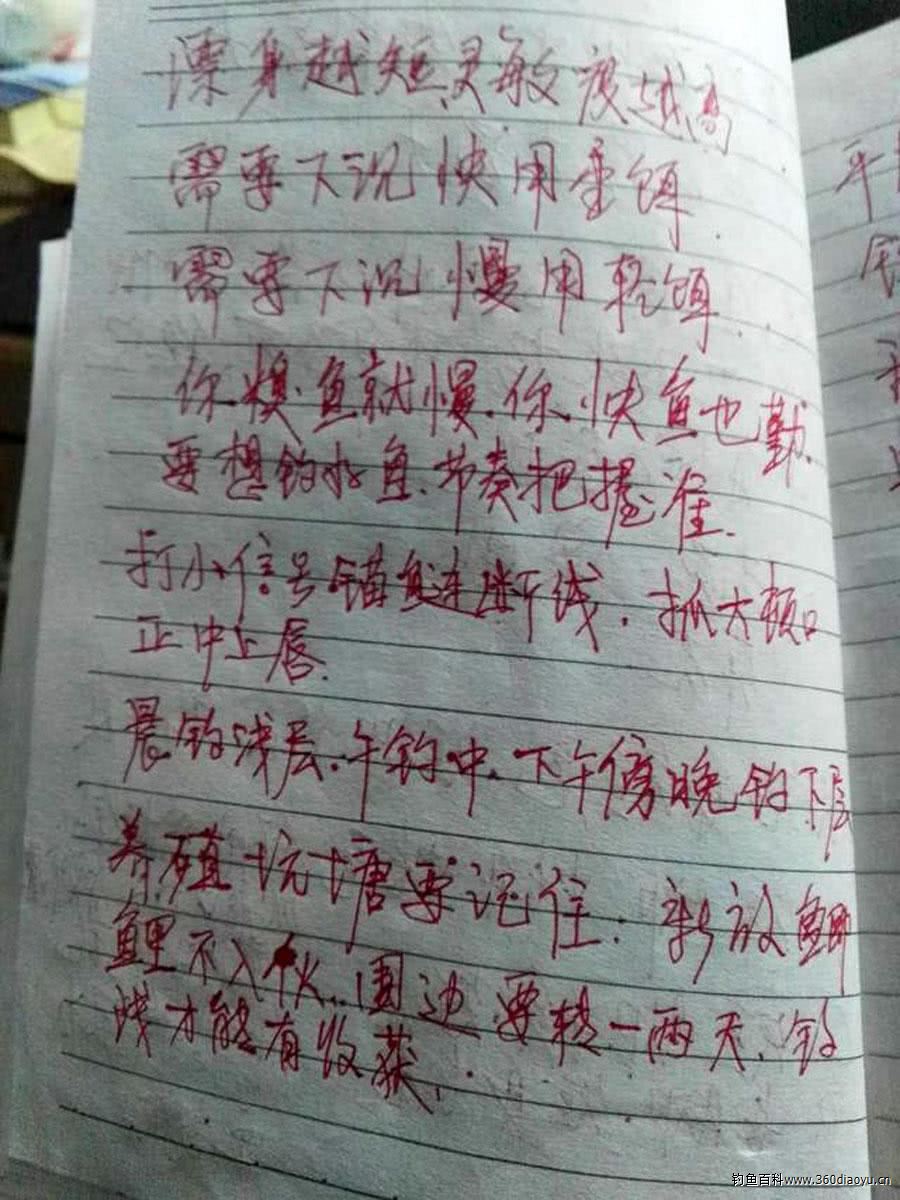 漂身越短灵敏度越高
需要下沉快用重饵.
需要下沉慢用轻饵.
你慢鱼就慢.你快鱼也勤.
要想钓水鱼.节奏把握准.
打小信号锚鱼连断线.抓大顿口
正中上唇.
晨钓浅层.午钓中.下午傍晚钓下层
养殖坑塘要记住:新放鲫
鲤不入伙..围边要转一两天.钓
浅才能有收获.
平
钓百科www.360diaoyu.cn